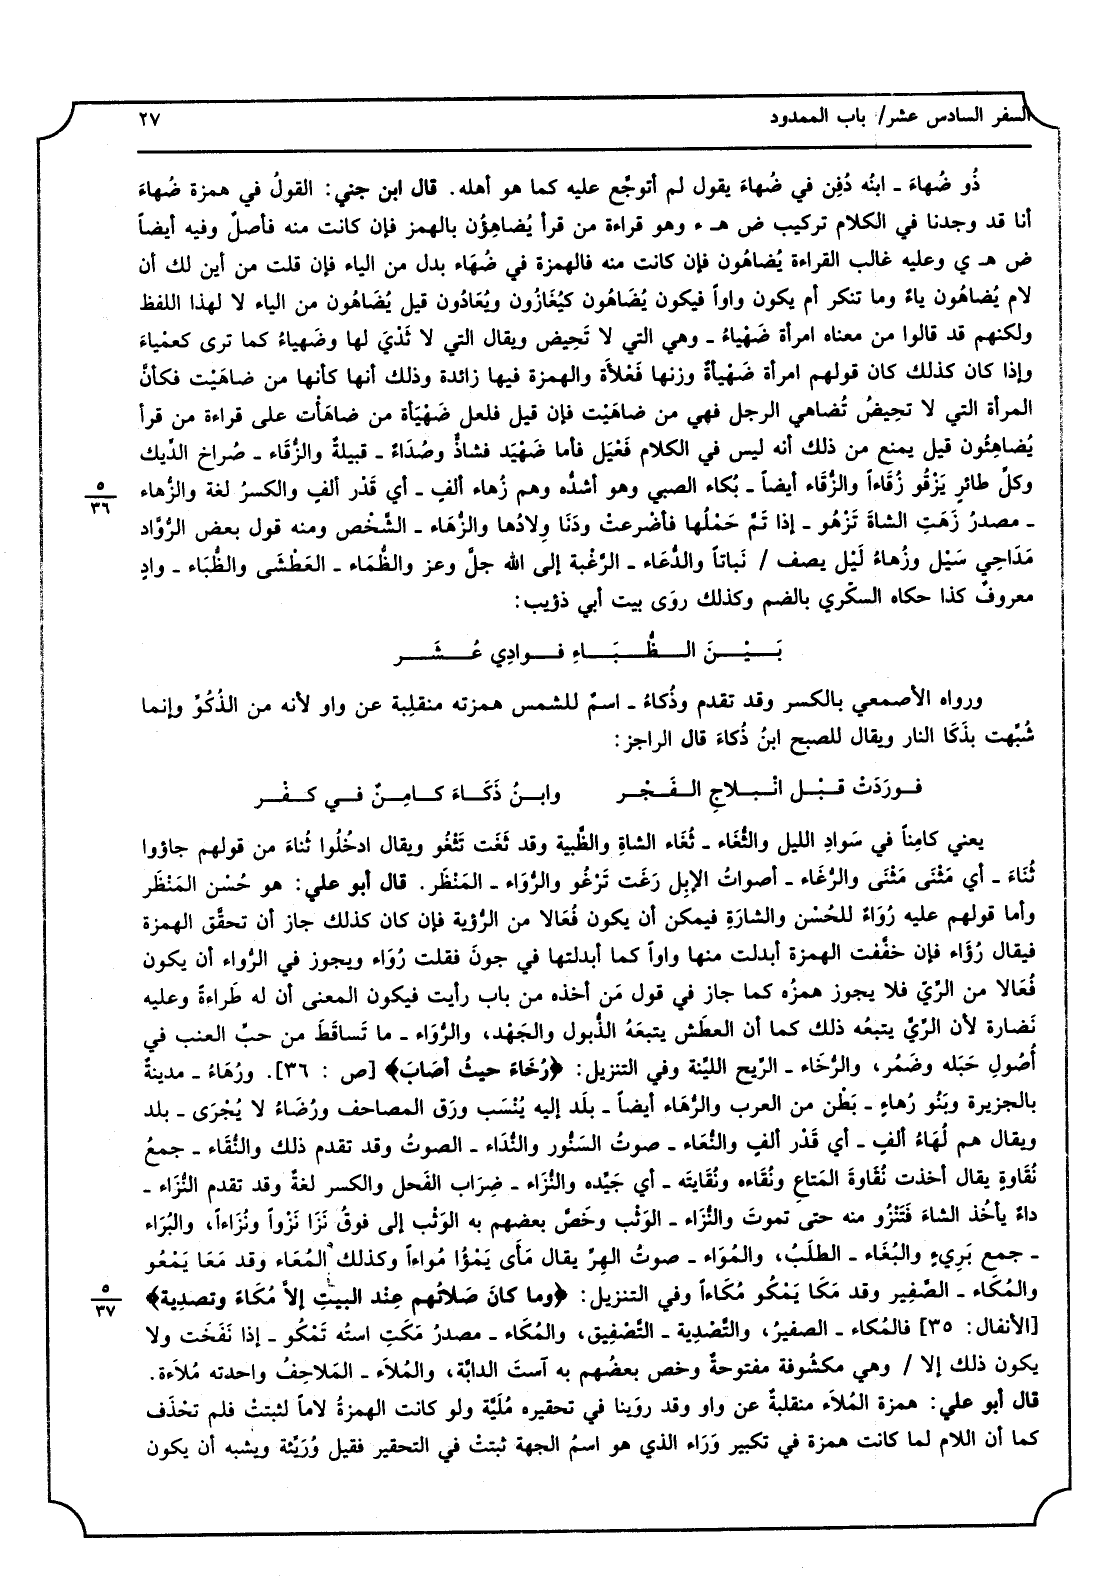 السفر السادس عشر/ باب الممدود
٢٧
ذُو ضُهاءَ ـ ابنُه دُفِن في ضُهاءَ يقول لم أتوجَّع عليه كما هو أهله. قال ابن جني: القولُ في همزة ضُهاءَ
أنا قد وجدنا في الكلام تركيب ض هـ ء وهو قراءة من قرأ يُضاهِؤُن بالهمز فإن كانت منه فأصلٌ وفيه أيضاً
ض هـ ي وعليه غالب القراءة يُضاهُون فإن كانت منه فالهمزة في ضُهَاء بدل من الياء فإن قلت من أين لك أن
لام يُضاهُون ياءٌ وما تنكر أم يكون واواً فيكون يُضَاهُون كيُغَازُون ويُعَادُون قيل يُضَاهُون من الياء لا لهذا اللفظ
ولكنهم قد قالوا من معناه امرأة ضَهْياءُ ـ وهي التي لا تَحِيض ويقال التي لا ثَدْيَ لها وضَهياءُ كما ترى كعمْياءَ
وإذا كان كذلك كان قولهم امرأة ضَهْيأةٌ وزنها فَعْلأَة والهمزة فيها زائدة وذلك أنها كأنها من ضاهَيْت فكأنَّ
المرأة التي لا تحِيضُ تُضاهي الرجل فهي من ضاهَيْت فإن قيل فلعل ضَهْيَأة من ضاهَأْت على قراءة من قرأ
يُضاهِئُون قيل يمنع من ذلك أنه ليس في الكلام فَعْيَل فأما ضَهْيَد فشاذٌّ وصُدَاءٌ ـ قبيلةٌ والزُّقَاء ـ صُراخ الدِّيك
وكلِّ طائرٍ يَزْقُو زُقَاءاً والزُّقَاء أيضاً ـ بُكاء الصبي وهو أشدُّه وهم زُهاء ألفٍ ـ أي قَدْر ألفٍ والكسرُ لغة والزُّهاء
٥
٣٦
ـ مصدرُ زَهَتِ الشاةَ تَزْهُو ـ إذا تَمَّ حَمْلُها فأضْرعتْ ودَنَا وِلادُها والزُّهَاء ـ الشَّخْص ومنه قول بعض الرُّوَّاد
مَدَاحِي سَيْل وزُهاءُ لَيْل يصف / نَباتاً والدُّعَاء ـ الرَّغْبة إلى الله جلَّ وعز والظُّمَاء ـ العَطْشَى والظُّبَاء ـ وادٍ
معروفٌ كذا حكاه السكّري بالضم وكذلك روَى بيت أبي ذؤيب:
بَـيْـنَ الـظُّـبَـاءِ فـوادِي عُـشَـر
ورواه الأصمعي بالكسر وقد تقدم وذُكاءُ ـ اسمٌ للشمس همزته منقلِبة عن واو لأنه من الذكُوِّ وإنما
شُبِّهت بذَكَا النار ويقال للصبح ابنُ ذُكاءَ قال الراجز:
فـورَدَتْ قـبْـل انْـبـلاجِ الـفَـجْـر وابـنُ ذَكَـاءَ كـامِـنٌ فـي كـفْـر
يعني كامِناً في سَوادِ الليل والثُّغَاء ـ ثُغَاء الشاةِ والظَّبية وقد ثَغَت تَثْغُو ويقال ادخُلُوا ثُناءَ من قولهم جاؤوا
ثُنَاءَ ـ أي مَثْنَى مَثْنَى والرُّغَاء ـ أصواتُ الإبِل رَغَت تَرْغُو والرُّوَاء ـ المَنْظَر. قال أبو علي: هو حُسْن المَنْظَر
وأما قولهم عليه رُوَاءٌ للحُسْن والشارَةِ فيمكن أن يكون فُعَالا من الرُّؤية فإن كان كذلك جاز أن تحقَّق الهمزة
فيقال رُؤَاء فإن خفَّفت الهمزة أبدلت منها واواً كما أبدلتها في جونَ فقلت رُوَاء ويجوز في الرُّواء أن يكون
فُعَالا من الرِّيِّ فلا يجوز همزُه كما جاز في قول مَن أخذه من باب رأيت فيكون المعنى أن له طَراءةً وعليه
نَضارة لأن الرِّيَّ يتبعُه ذلك كما أن العطَش يتبعَهُ الذُّبول والجَهْد، والرُّوَاء ـ ما تَساقَطَ من حبِّ العنب في
أُصُولِ حَبَله وضَمُر، والرُّخَاء ـ الرِّيح الليِّنة وفي التنزيل: ﴿رُخَاءَ حيثُ أصَابَ﴾ [ص : ٣٦]. ورُهَاءُ ـ مدينةٌ
بالجزيرة وبَنُو رُهاءٍ ـ بَطْن من العرب والرُّهَاء أيضاً ـ بلَد إليه يُنْسَب ورَق المصاحف ورُضَاءُ لا يُجْرَى ـ بلد
ويقال هم لُهَاءُ ألفٍ ـ أي قَدْر ألفٍ والنُّعَاء ـ صوتُ السَنُّور والنُّدَاء ـ الصوتُ وقد تقدم ذلك والنُّقَاء ـ جمعُ
نُقَاوةٍ يقال أخذت نُقَاوةَ المَتاعِ ونُقَاءه ونُقَايتَه ـ أي جَيِّده والنُّزَاء ـ ضِرَاب الفَحل والكسر لغةٌ وقد تقدم النُّزَاء ـ
داءٌ يأخُذ الشاءَ فَتَنْزُو منه حتى تموتَ والنُّزَاء ـ الوَثْب وخَصَّ بعضهم به الوَثْب إلى فوقُ نَزَا نَزْواً ونُزَاءاً، والبُرَاء
ـ جمع بَرِيءٍ والبُغَاء ـ الطلَبُ، والمُوَاء ـ صوتُ الهِرِّ يقال مَأَى يَمْؤُا مُواءاً وكذلك المُعَاء وقد مَعَا يَمْعُو
والمُكَاء ـ الصَّفِير وقد مَكَا يَمْكُو مُكَاءاً وفي التنزيل: ﴿وما كانَ صَلاتُهم عِنْد البيتِ إلاَّ مُكَاءً وتصدِية﴾
٥
٣٧
[الأنفال: ٣٥] فالمُكاء ـ الصفيرُ، والتَّصْدِية ـ التَّصْفِيق، والمُكَاء ـ مصدرُ مَكَتِ استُه تَمْكُو ـ إذا نَفَخَت ولا
يكون ذلك إلا / وهي مكشُوفة مفتوحةٌ وخص بعضُهم به آستَ الدابَّة، والمُلاَء ـ المَلاحِفُ واحدته مُلاَءة.
قال أبو علي: همزة المُلاَء منقلبةٌ عن واو وقد روَينا في تحقيره مُلَيَّة ولو كانت الهمزةُ لاماً لثبتتْ فلم تحْذَف
كما أن اللام لما كانت همزة في تكبير وَرَاء الذي هو اسمُ الجهة ثبتتْ في التحقير فقيل وُرَيِّئة ويشبه أن يكون